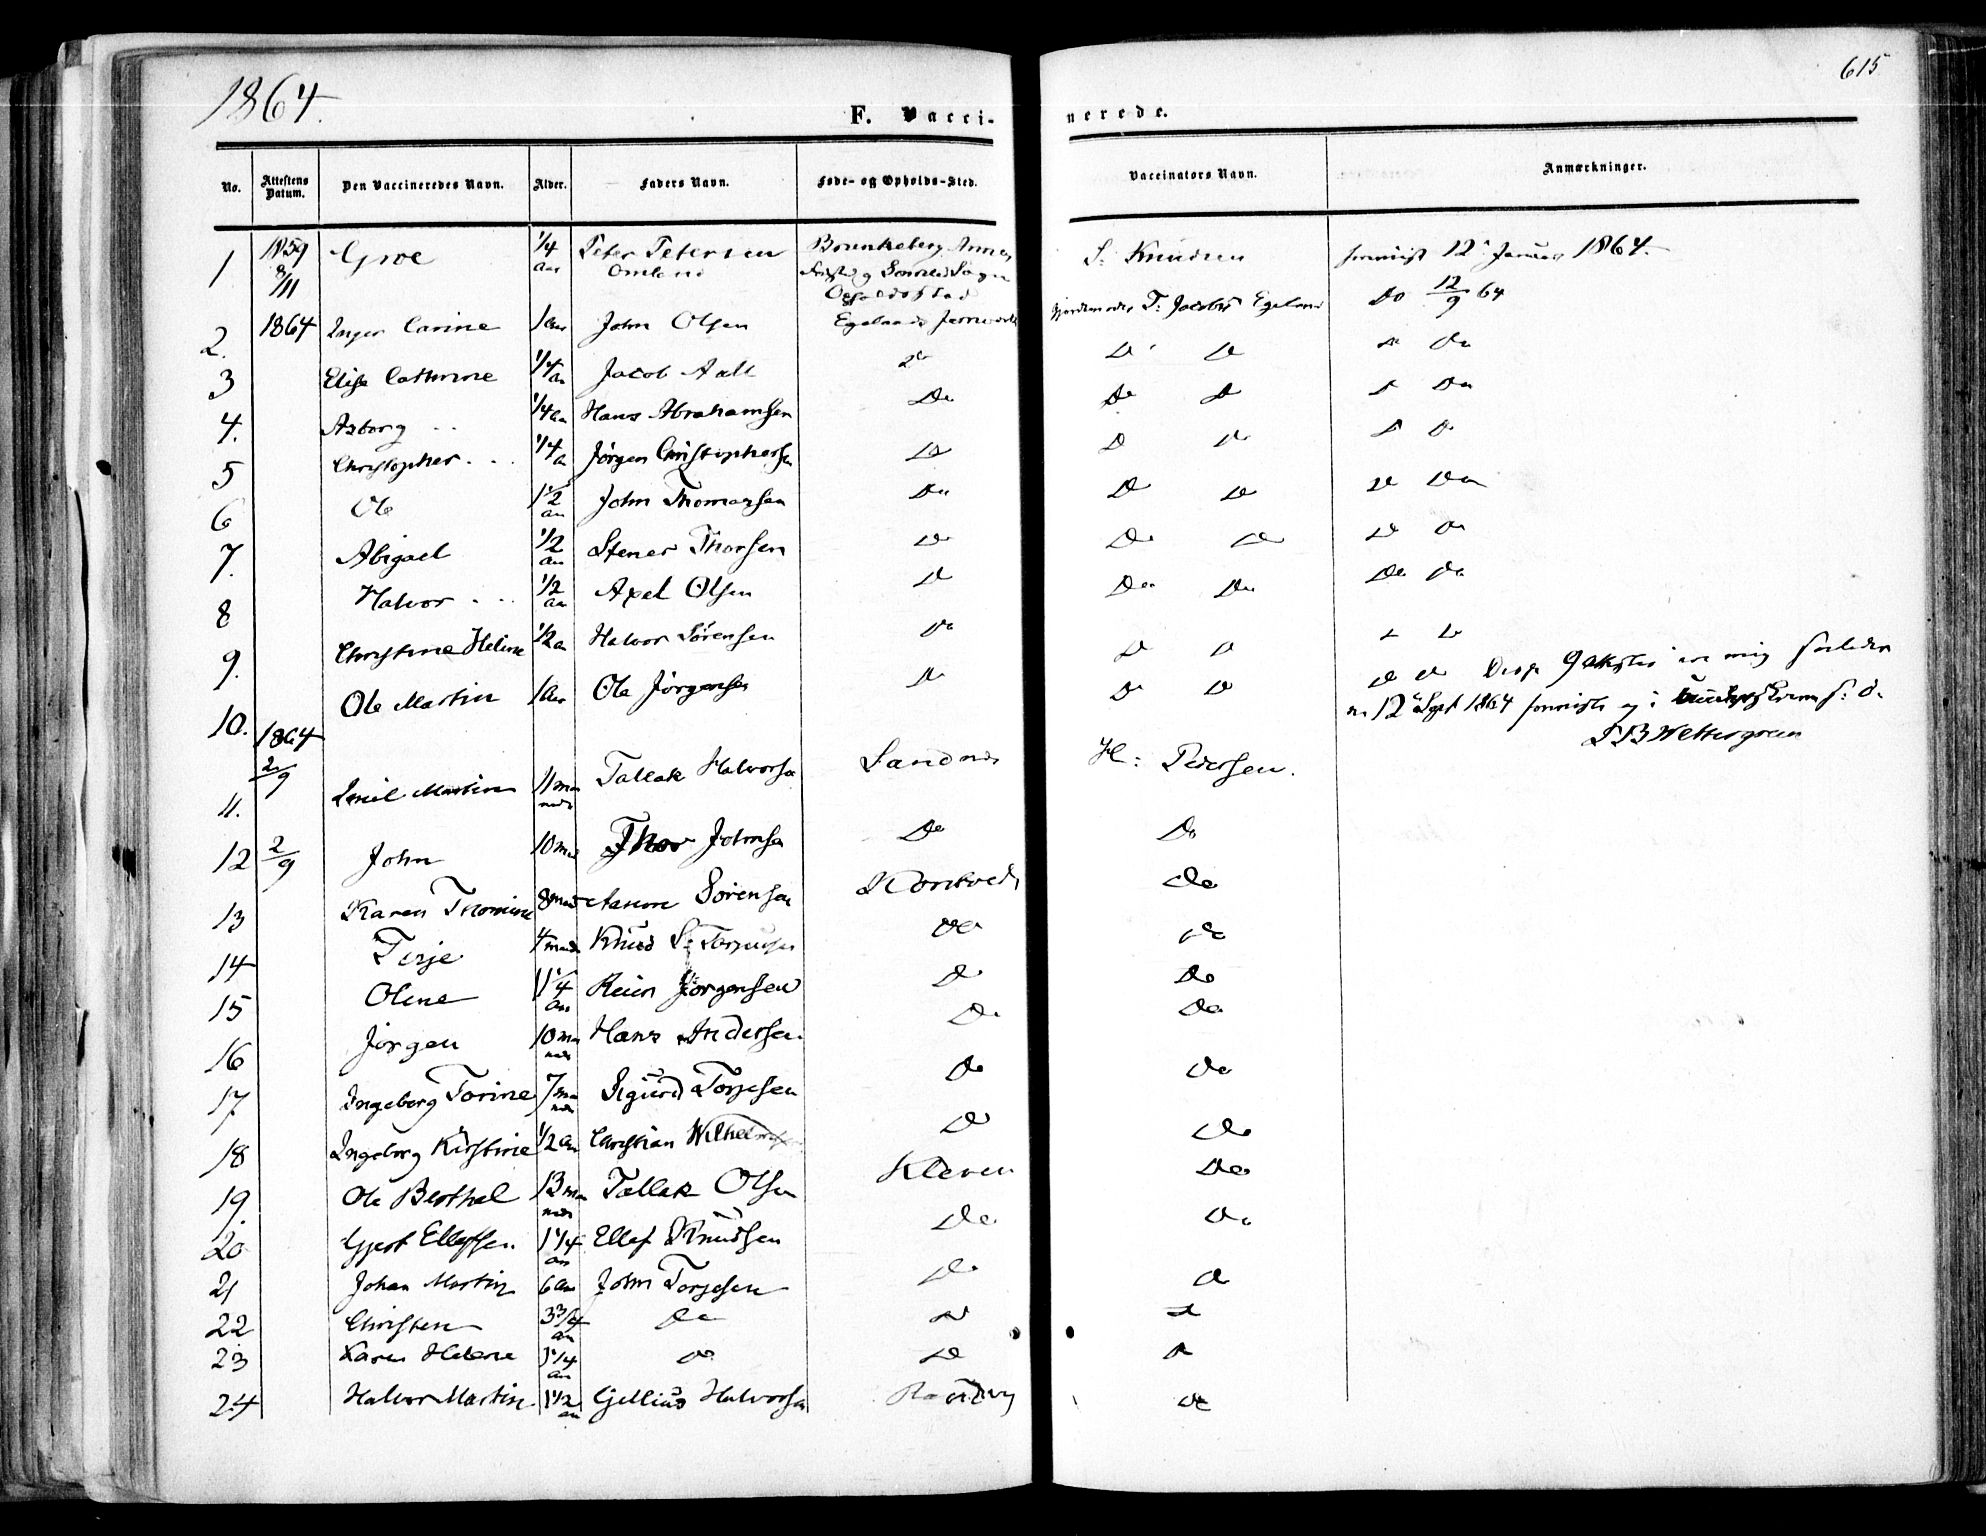 1864.
615
F. Vacci-
nerede.
No. Attestens Datum. Den Vaccineredes Navn. Alder. Faders Navn. Føde- og Opholds-Sted. Vaccinators Navn. Anmærkninger.
1 1859 8/11 Groe 1/4 aar Peter Petersen Omland S. Knudsen forevist 12 Januar 1864.
2. 1864 Inger Carine 1 aar John Olsen Egelands Jernverk T: Jacobs Egeland Do 12/9 64
3 Elise Cathrine 1/4 aar Jacob Aall Do Do Do Do Do
4. Asborg 1/4 aar Hans Abrahamsen Do Do Do Do Do
5 Christopher 1/4 a Jørgen Christophersen Do Do Do Do Do
6 Ole 1 1/2 aar John Thomassen Do Do Do Do Do
7. Abigael 1/2 aar Stener Thorsen Do Do Do Do Do
8 Halvor 1/2 aar Axel Olsen Do Do Do Do Do
9. Christine Helene 1/2 aar Halvor Sørensen Do Do Do Do Do
10. Ole Martin 1 aar Ole Jørgensen Do Do Do Do Do Disse 9 ere mig
12 Sept 1864 foreviste
S B Wettergreen
11. 1864 2/9 Emil Martin 11 maaneder Tallak Halvorsen Sandnes H: Pedersen.
12 2/9 John 10 mnd Thor Johnsen Do Do
13 Karen Thomine 8 mnd Aanon Sørensen Do
14 Terje 4 mnd Knud S: Terjesen Do Do
15 Olene 1 1/4 aar Reier Jørgensen Do Do
16 Jørgen 10 maaneder Hans Andersen Do Do
17 Ingeborg Torine 7 maaneder Sigurd Torjesen Do Do
18 Ingeborg Kirstine 1/2 aar Christian Wilhelmsen Do Do
19. Ole Berthel 13 maaneder Tallak Olsen Kleven Do
20 Gjert Ellefsen 1 1/4 aar Ellef Knudsen Do Do
21 Johan Martin 6 aar John Torjesen Do Do
22 Christen 3 3/4 aar Do Do Do
23 Karen Helene 1 1/4 aar Do Do Do
24 Halvor Martin 1 1/2 aar Gjellius Halvorsen Do